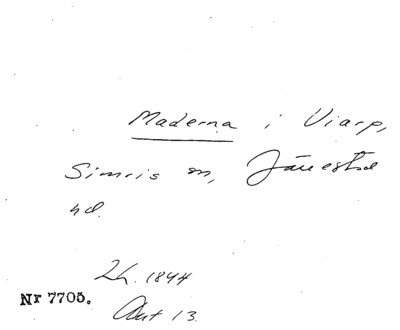 Maderna i Viarp,
Simris sn, Järrestad
hd.
Lh. 1844
Nr 7705.
Akt 13.